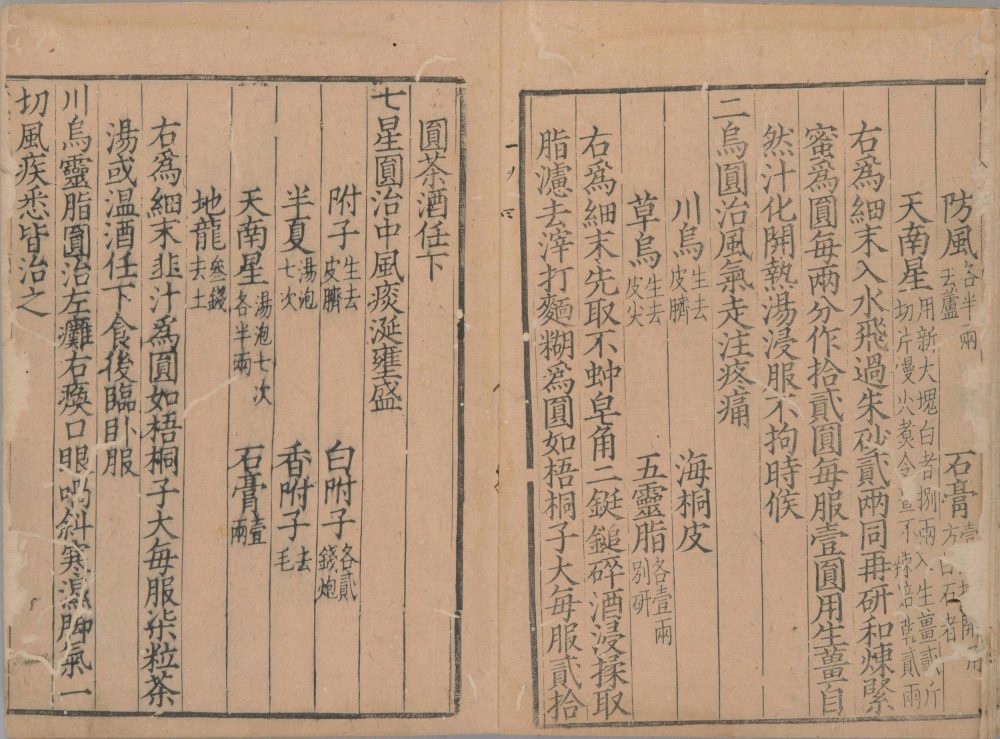 防風各半兩去蘆 石膏
天南星用新大塊白者捌兩入生薑貳斤切片慢火煑令 不 焙乾貳兩
右爲細末入水飛過朱砂貳兩同再研和煉緊
蜜爲圓每兩分作拾貳圓每服壹圓用生薑自
然汁化開熱湯浸服不拘時候
二烏圓治風氣走注疼痛
川烏生去皮臍 海桐皮
草烏生去皮尖 五靈脂各壹兩別研
右爲細末先取不蚛皂角二鋌鎚碎酒浸揉取
脂濾去滓打麵糊爲圓如梧桐子大每服貳拾
圓茶酒任下
七星圓治中風痰涎壅盛
附子生去皮臍 白附子各貳錢炮
半夏湯泡七次 香附子去毛
天南星湯泡七次各半兩 石膏壹兩
地龍叁錢去土
右爲細末韭汁爲圓如梧桐子大每服柒粒茶
湯或温酒任下食後臨卧服
川烏靈脂圓治左癱右瘓口眼喎斜寒濕脚氣一
切風疾悉皆治之